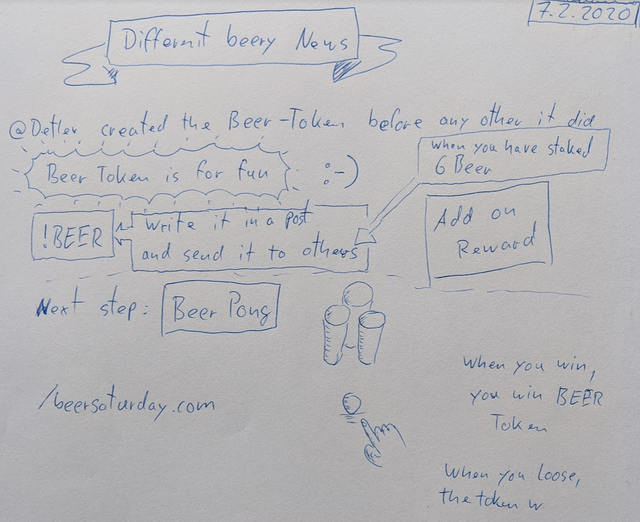 7.2.2020
Different beery News
@Detlev created the Beer-Token before any other it did
Beer Token is for fun :-)
when you have staked
6 Beer
!BEER
Write it in a post
and send it to others
Add on
Reward
Next step: Beer Pong
When you win,
you win BEER
Token
/beersaturday.com
When you loose,
the token w